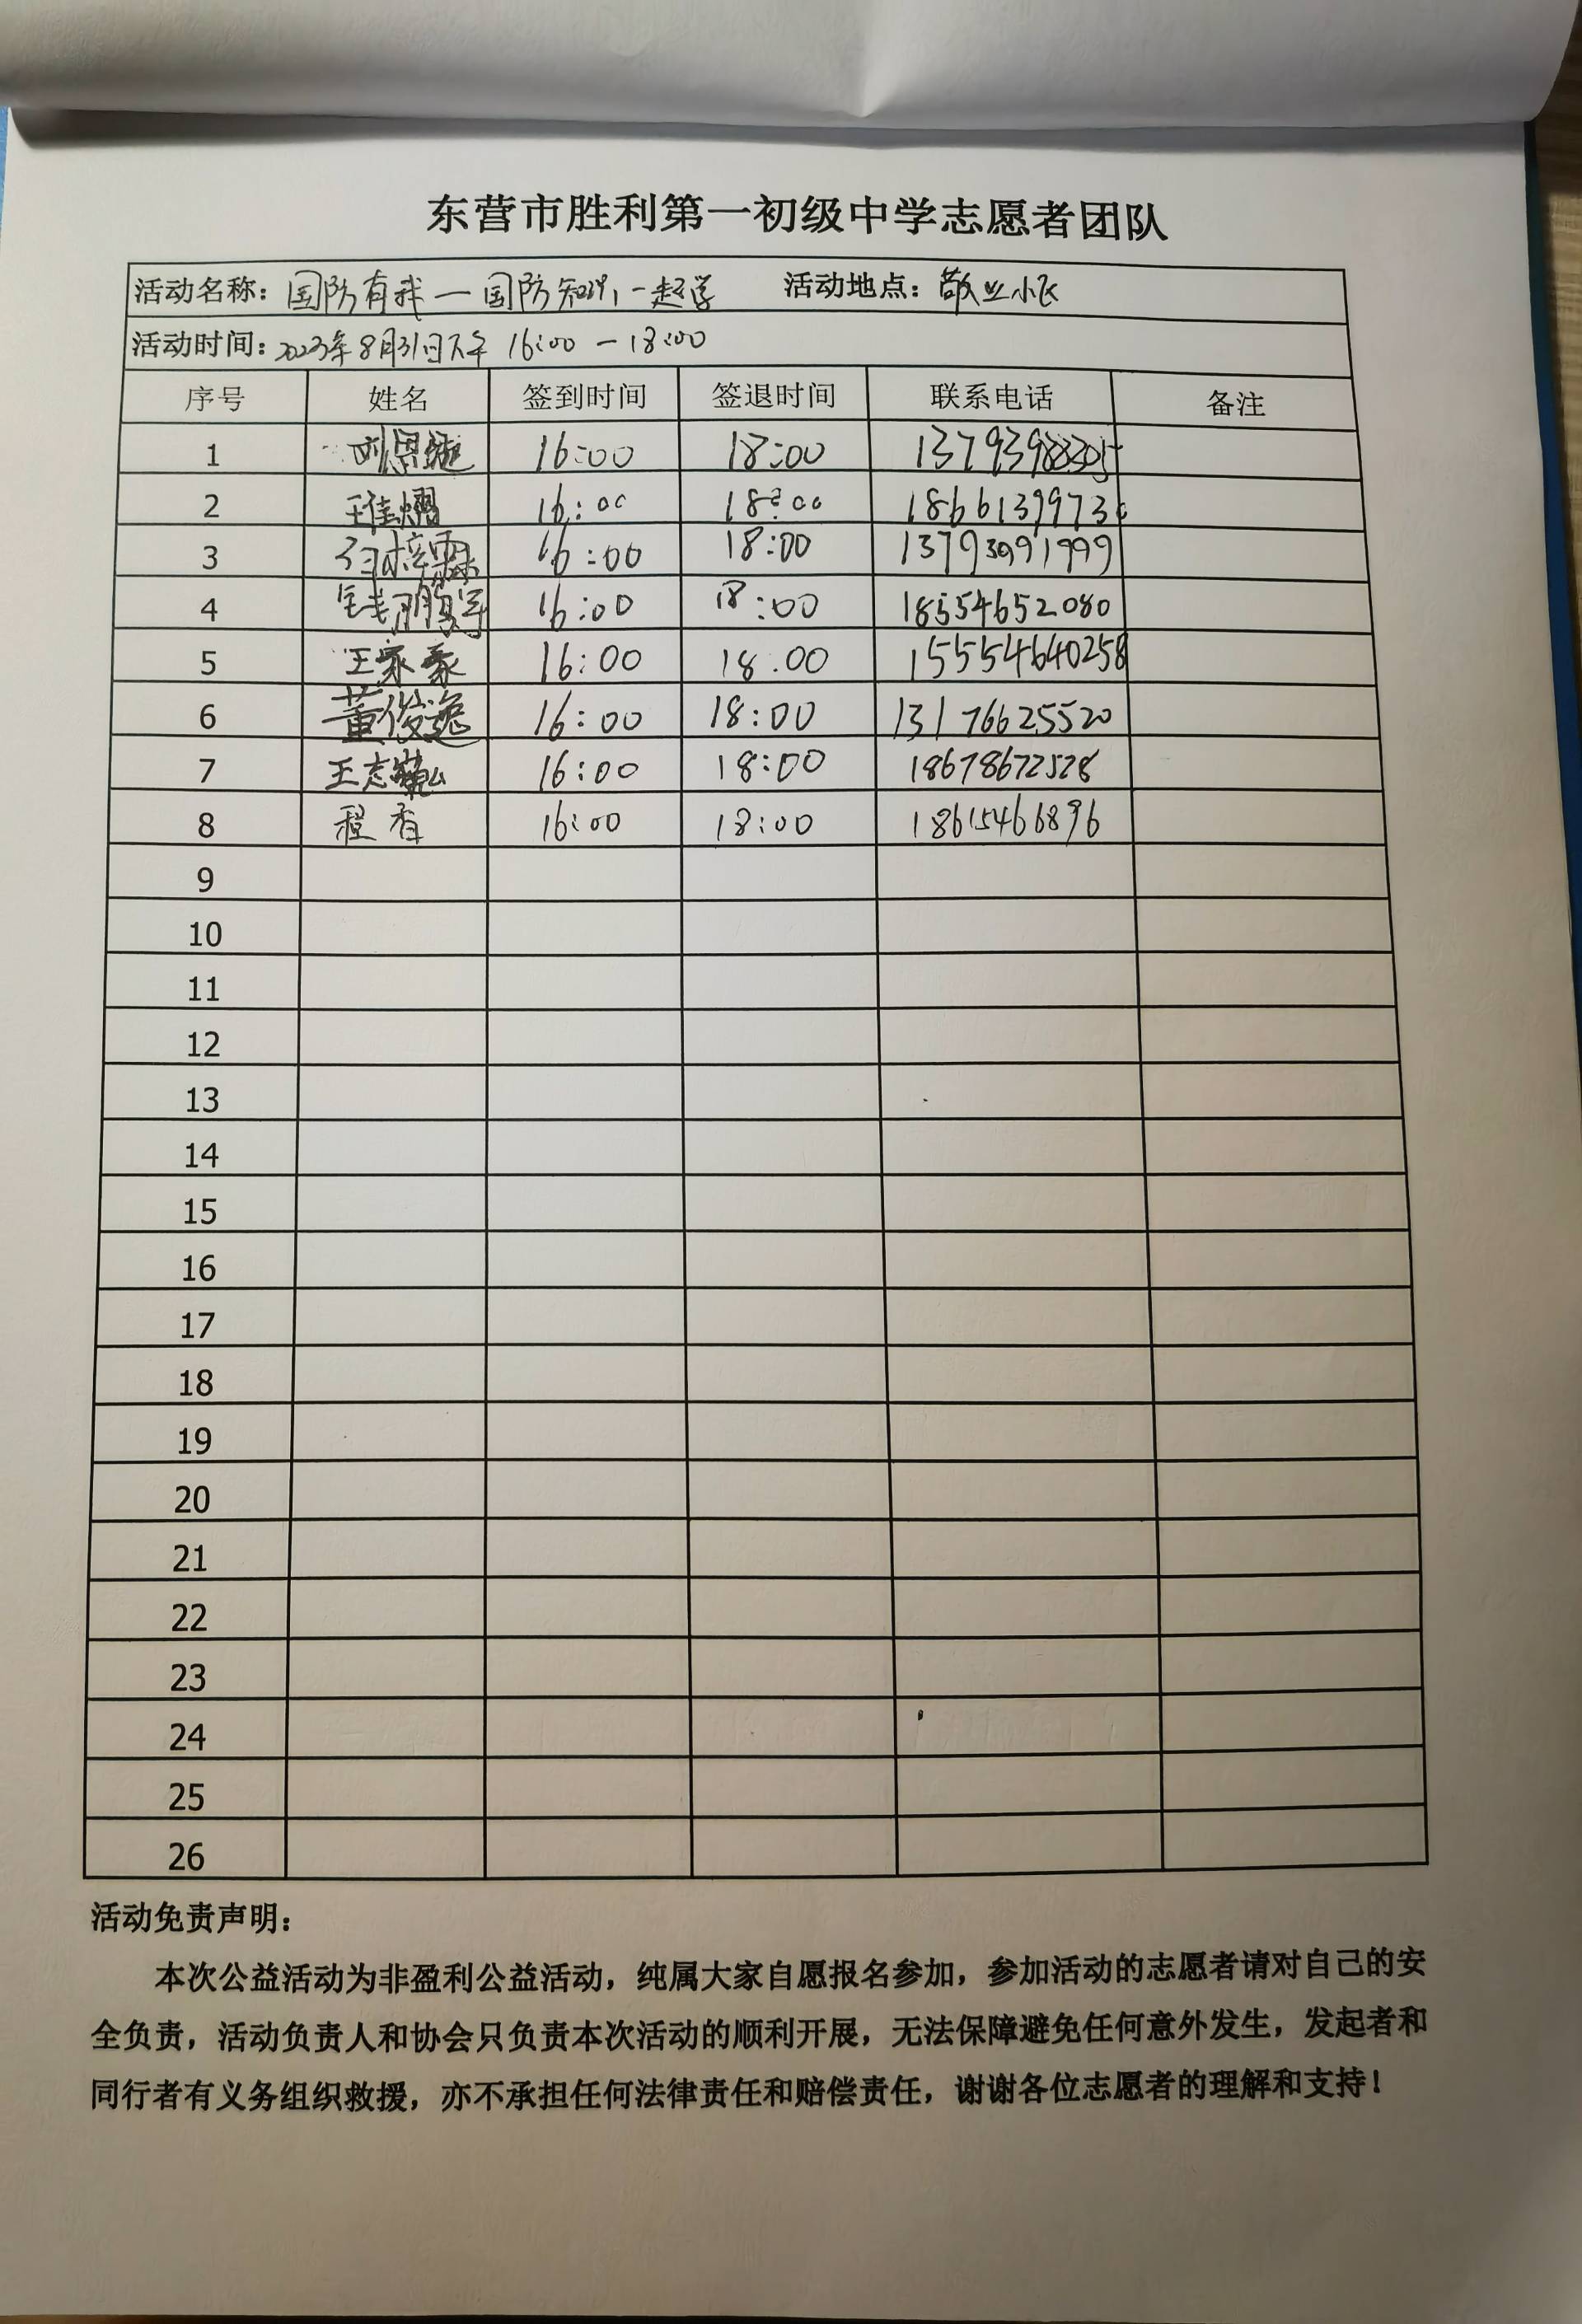 东营市胜利第一初级中学志愿者团队
活动名称：国防有我一国防知识，一起学 活动地点：敬业小区
活动时间：2023年8月31日下午 16:00 — 18:00
序号 姓名 签到时间 签退时间 联系电话 备注
1 16:00 18:00
2 16:00 18:00
3 16:00 18:00 13793091999
4 16:00 18:00 18554652080
5 王家豪 16:00 18:00 15554640258
6 董俊逸 16:00 18:00 13176625520
7 王志 16:00 18:00 18678672528
8 程香 16:00 18:00 18615466896
9
10
11
12
13
14
15
16
17
18
19
20
21
22
23
24
25
26
活动免责声明：
本次公益活动为非盈利公益活动，纯属大家自愿报名参加，参加活动的志愿者请对自己的安
全负责，活动负责人和协会只负责本次活动的顺利开展，无法保障避免任何意外发生，发起者和
同行者有义务组织救援，亦不承担任何法律责任和赔偿责任，谢谢各位志愿者的理解和支持！